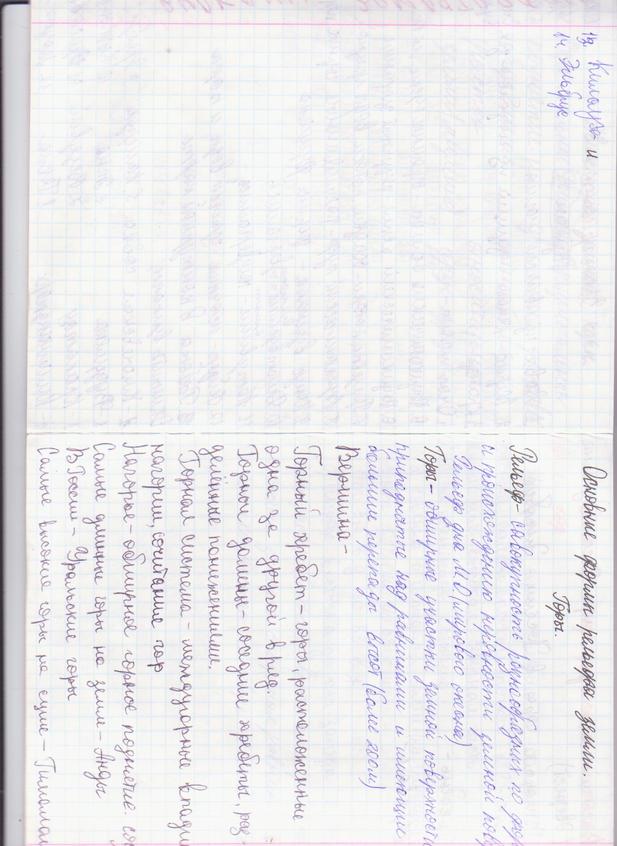 13. Килауэа и
14. Эльбрус
Основные формы рельефа земли.
Горы.
Рельеф- совокупность разнообразных по фор
и происхождению неровности земной пов
Рельеф дна МО (мирового океана)
Горы- обширные участки земной поверхности
приподнятые над равнинами и имеющие
большие перепады высот (более 200м)
Вершина-
Горный хребет- горы, расположенные
одна за другой в ряд
Горной долины- соседние хребты, раз
делённые понежениями.
Горная система- междугорные впадин
нагории, сочитание гор
Нагорье- обширное горное поднятие.
Самые длинные горы на земле- Анды
В России- Уральские горы
Самые высокие горы на суше- Гималаи